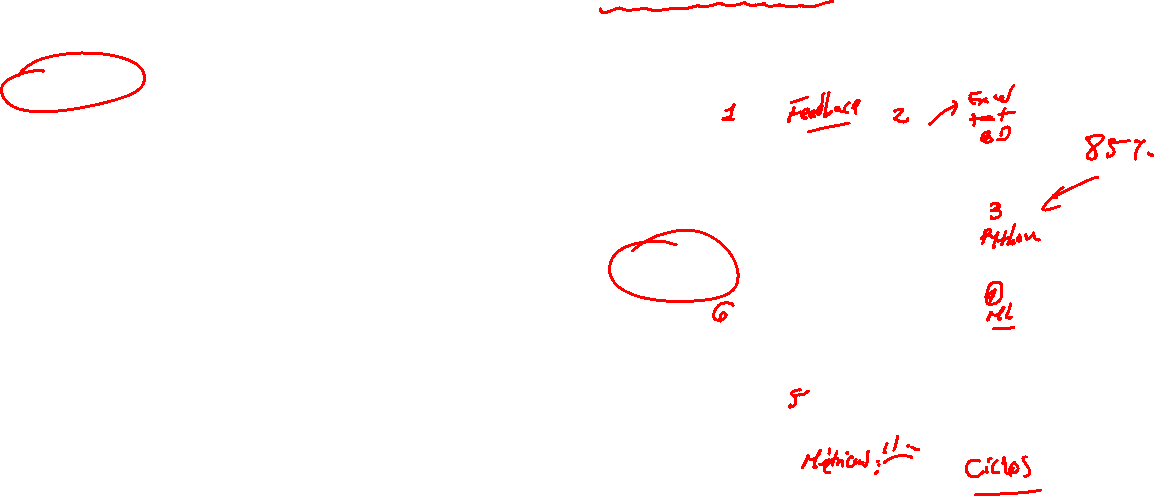 1 Feedback 2 Excel
txt
BD
85%
3
Python
4
ML
6
5
Métricas:
Ciclos